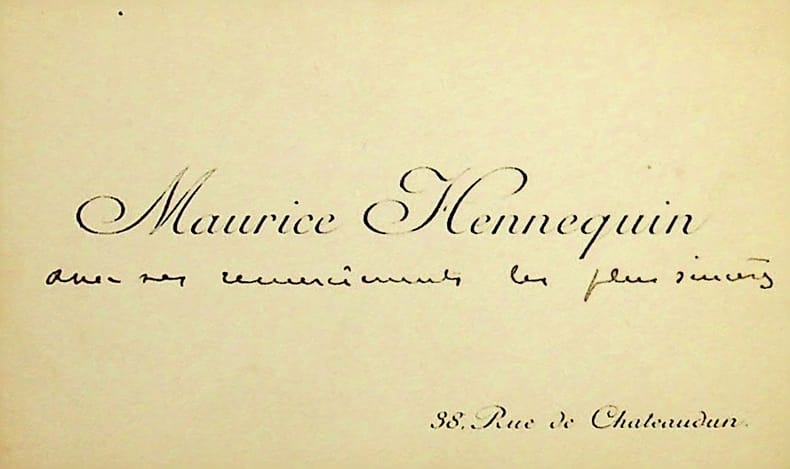 Maurice Hennequin
avec ses remerciements les plus sincères
38, Rue de Chateaudun.